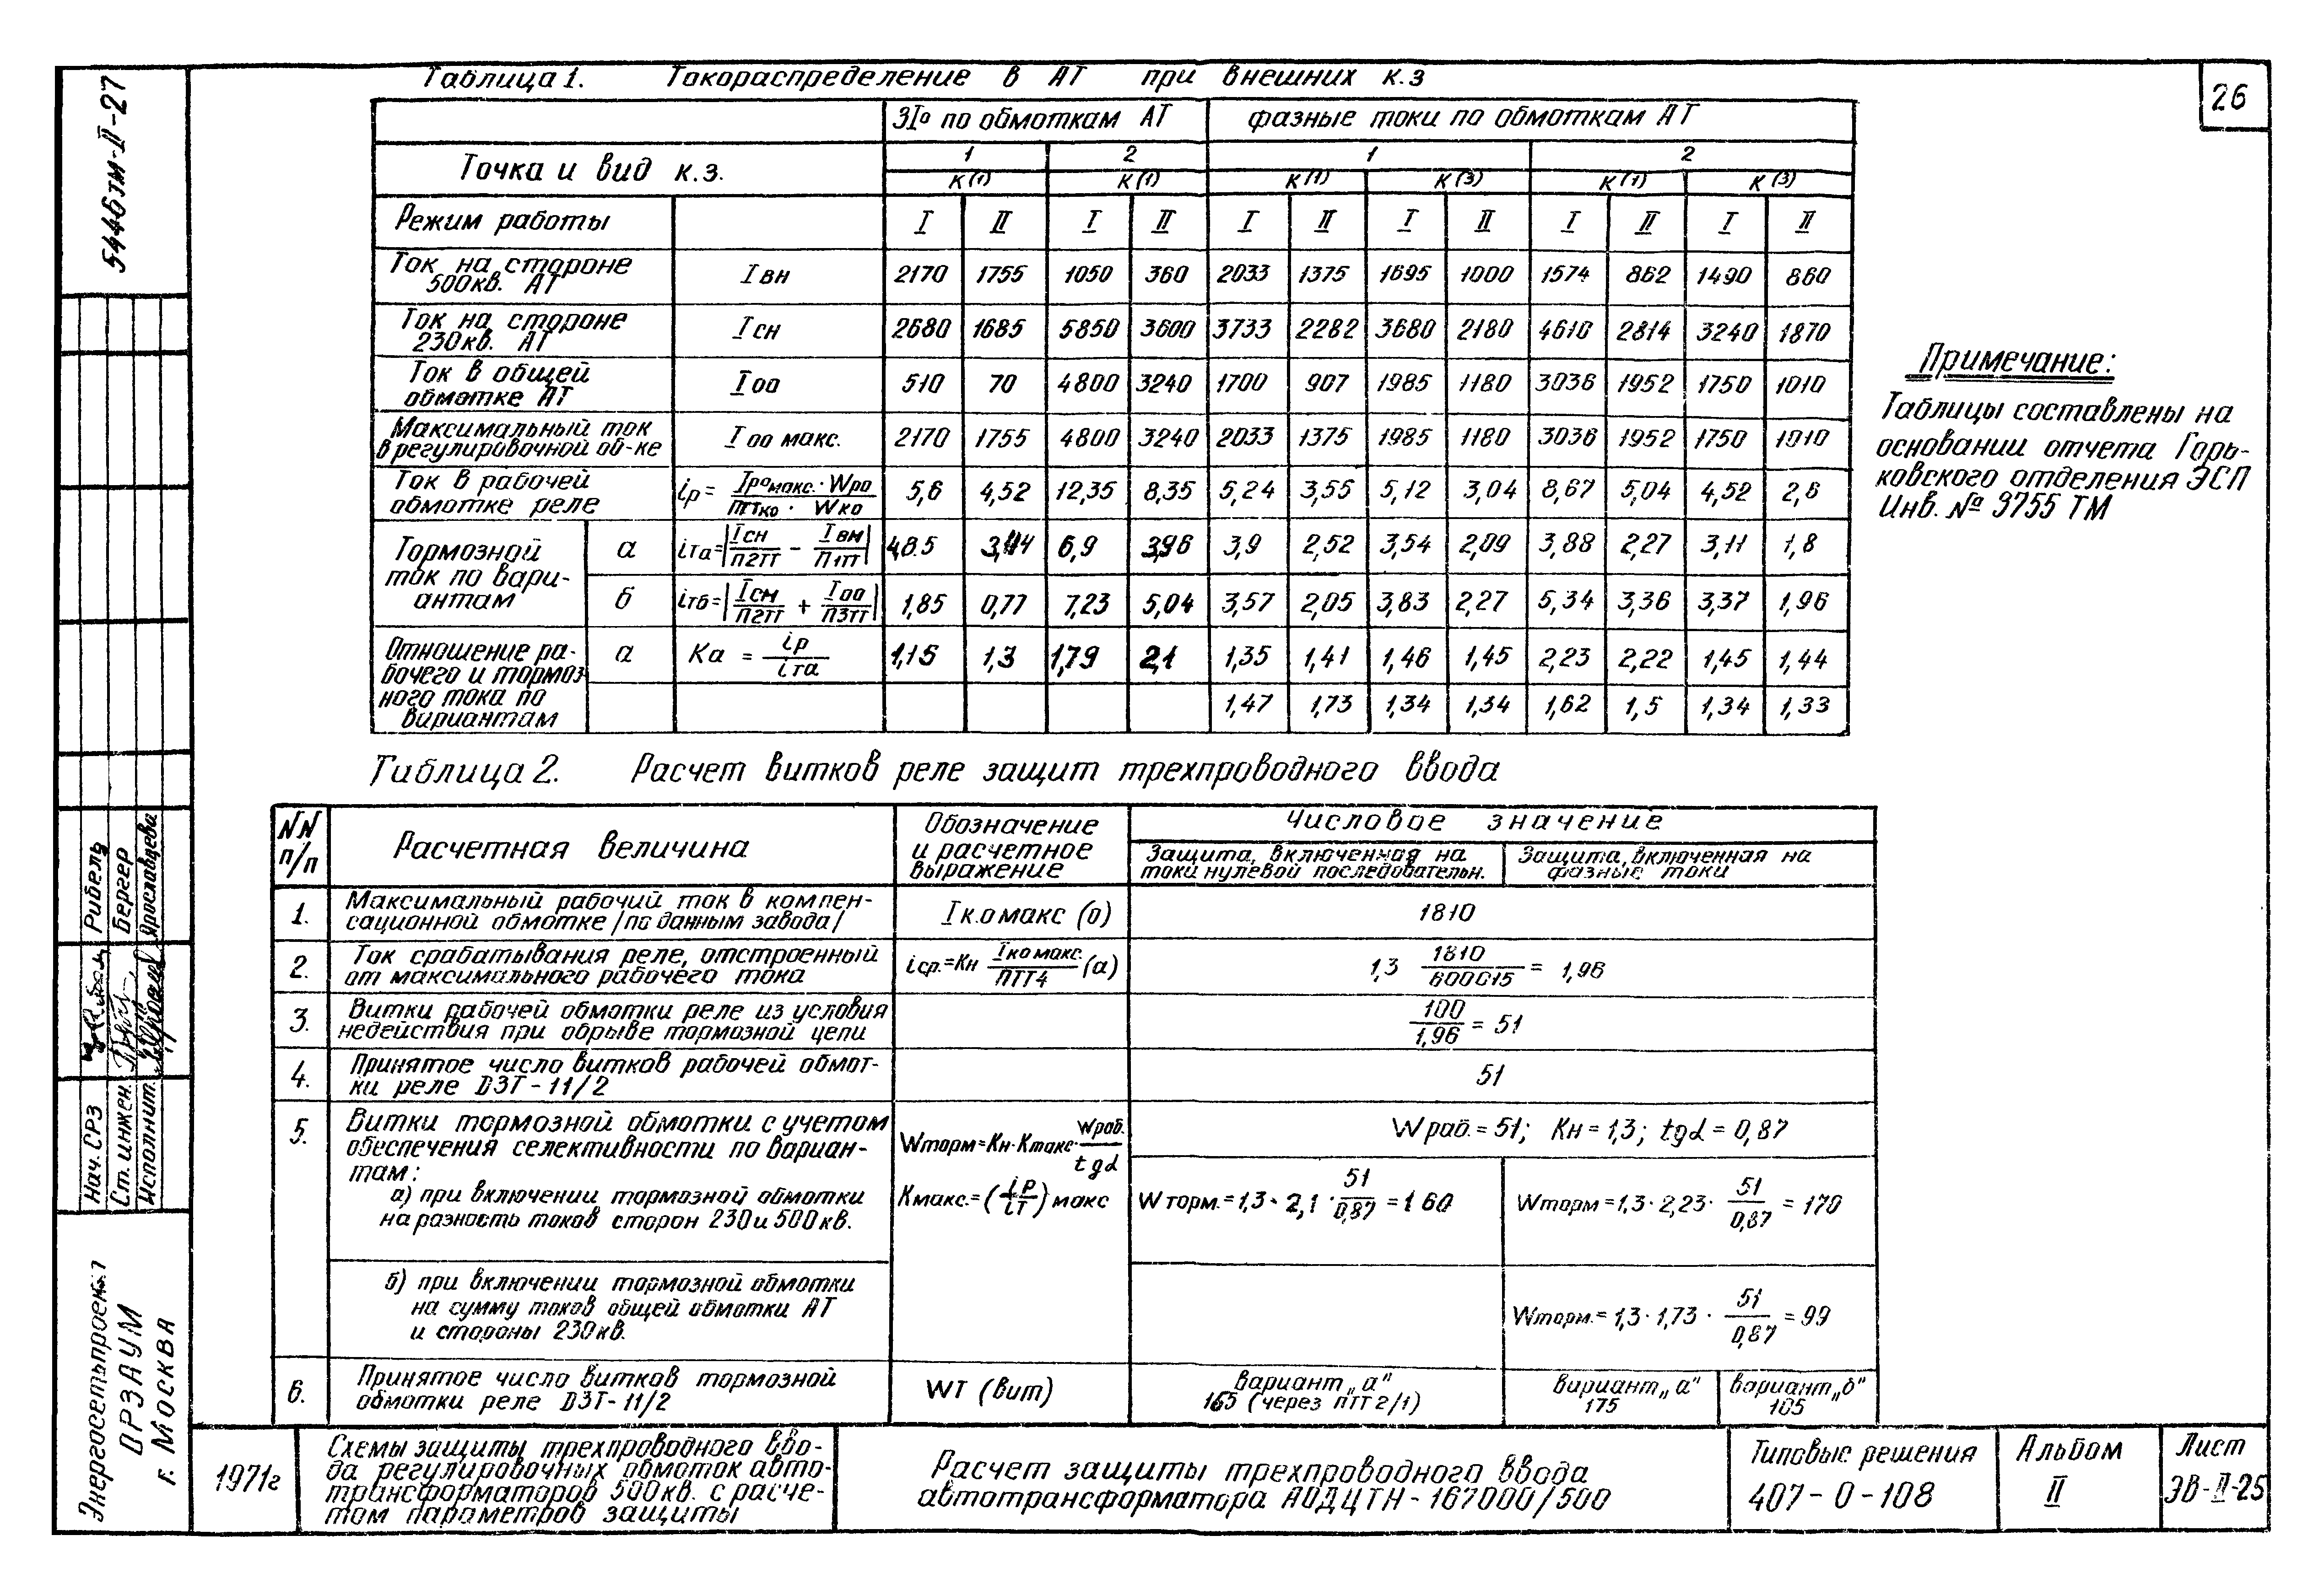 Таблица 1. Токораспределение в АТ при внешних к.з
26
5446тм-II-27
3I₀ по обмоткам АТ фазные токи по обмоткам АТ
Точка и вид к.з. 1 2 1 2
К(1) К(1) К(1) К(3) К(1) К(3)
Режим работы I II I II I II I II I II I II
Ток на стороне
500кв. АТ Iвн 2170 1755 1050 360 2033 1375 1695 1000 1574 862 1490 860
Ток на стороне
230кв. АТ Iсн 2680 1685 5850 3600 3733 2282 3680 2180 4610 2814 3240 1870
Ток в общей
обмотке АТ Iоо 510 70 4800 3240 1700 907 1985 1180 3036 1952 1750 1010
Максимальный ток
в регулировочной об-ке Iоо макс. 2170 1755 4800 3240 2033 1375 1985 1180 3036 1952 1750 1010
Ток в рабочей
обмотке реле iр = Iромакс. · Wро / ПТТко · Wко 5,6 4,52 12,35 8,35 5,24 3,55 5,12 3,04 8,67 5,04 4,52 2,6
Тормозной
ток по вари-
антам
а iта = |Iсн/П2тт − Iвн/П1тт| 6,9 3,96 3,9 2,52 3,54 2,09 3,88 2,27 3,11 1,8
б iтб = |Iсн/П2тт + Iоо/П3тт| 1,85 0,77 7,23 5,04 3,57 2,05 3,83 2,27 5,34 3,36 3,37 1,96
Отношение ра-
бочего и тормоз-
ного тока по
вариантам
а Ка = iр/iта 1,15 1,3 1,79 2,1 1,35 1,41 1,46 1,45 2,23 2,22 1,45 1,44
1,47 1,73 1,34 1,34 1,62 1,5 1,34 1,33
Примечание:
Таблицы составлены на
основании отчета Горь-
ковского отделения ЭСП
Инв. № 3755 ТМ
Таблица 2. Расчет витков реле защит трехпроводного ввода
NN
п/п
Расчетная величина
Обозначение
и расчетное
выражение
Числовое значение
Защита, включенная на
токи нулевой последовательн.
Защита, включенная на
фазные токи
1. Максимальный рабочий ток в компен-
сационной обмотке /по данным завода/ Iк.о макс (о) 1810
2. Ток срабатывания реле, отстроенный
от максимального рабочего тока iср.=Кн Iко макс./ПТТ4 (а) 1,3 1810/6000·15 = 1,96
3. Витки рабочей обмотки реле из условия
недействия при обрыве тормозной цепи 100/1,96 = 51
4. Принятое число витков рабочей обмот-
ки реле ДЗТ-11/2 51
5. Витки тормозной обмотки с учетом
обеспечения селективности по вариан-
там:
Wторм=Кн·Кмакс·Wраб./tgα
Wраб.=51; Кн=1,3; tgα=0,87
а) при включении тормозной обмотки
на разность токов сторон 230 и 500кв.
Кмакс.=(iр/iт) макс
Wторм.=1,3·2,1·51/0,87=160
Wторм=1,3·2,23·51/0,87=170
б) при включении тормозной обмотки
на сумму токов общей обмотки АТ
и стороны 230кв.
Wторм.=1,3·1,73·51/0,87=99
6. Принятое число витков тормозной
обмотки реле ДЗТ-11/2 WТ (вит)
Вариант „а"
165 (через ПТТ 2/1)
Вариант „а"
175
Вариант „б"
105
Рибель
Бергер
Ярославцева
Нач. СРЗ
Ст. инжен.
Исполнит.
Энергосетьпроект
ОРЗАУМ
г. Москва
1971г
Схемы защиты трехпроводного вво-
да регулировочных обмоток авто-
трансформаторов 500кв. с расче-
том параметров защиты
Расчет защиты трехпроводного ввода
автотрансформатора АОДЦТН-167000/500
Типовые решения
407-0-108
Альбом
II
Лист
ЭВ-II-25